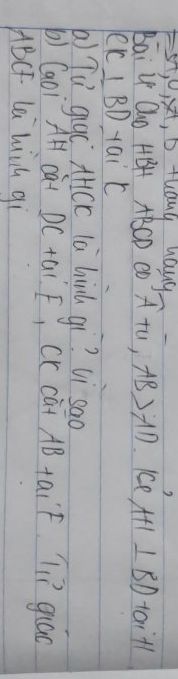 thẳng hàng
Bài 4 Cho HBH ABCD có Â tù, AB > AD. Kẻ AH ⊥ BD tại H
CK ⊥ BD tại K
a) Tứ giác AHCK là hình gì? Vì sao
b) Gọi AH cắt DC tại E, CK cắt AB tại F. Tứ giác
AECF là hình gì